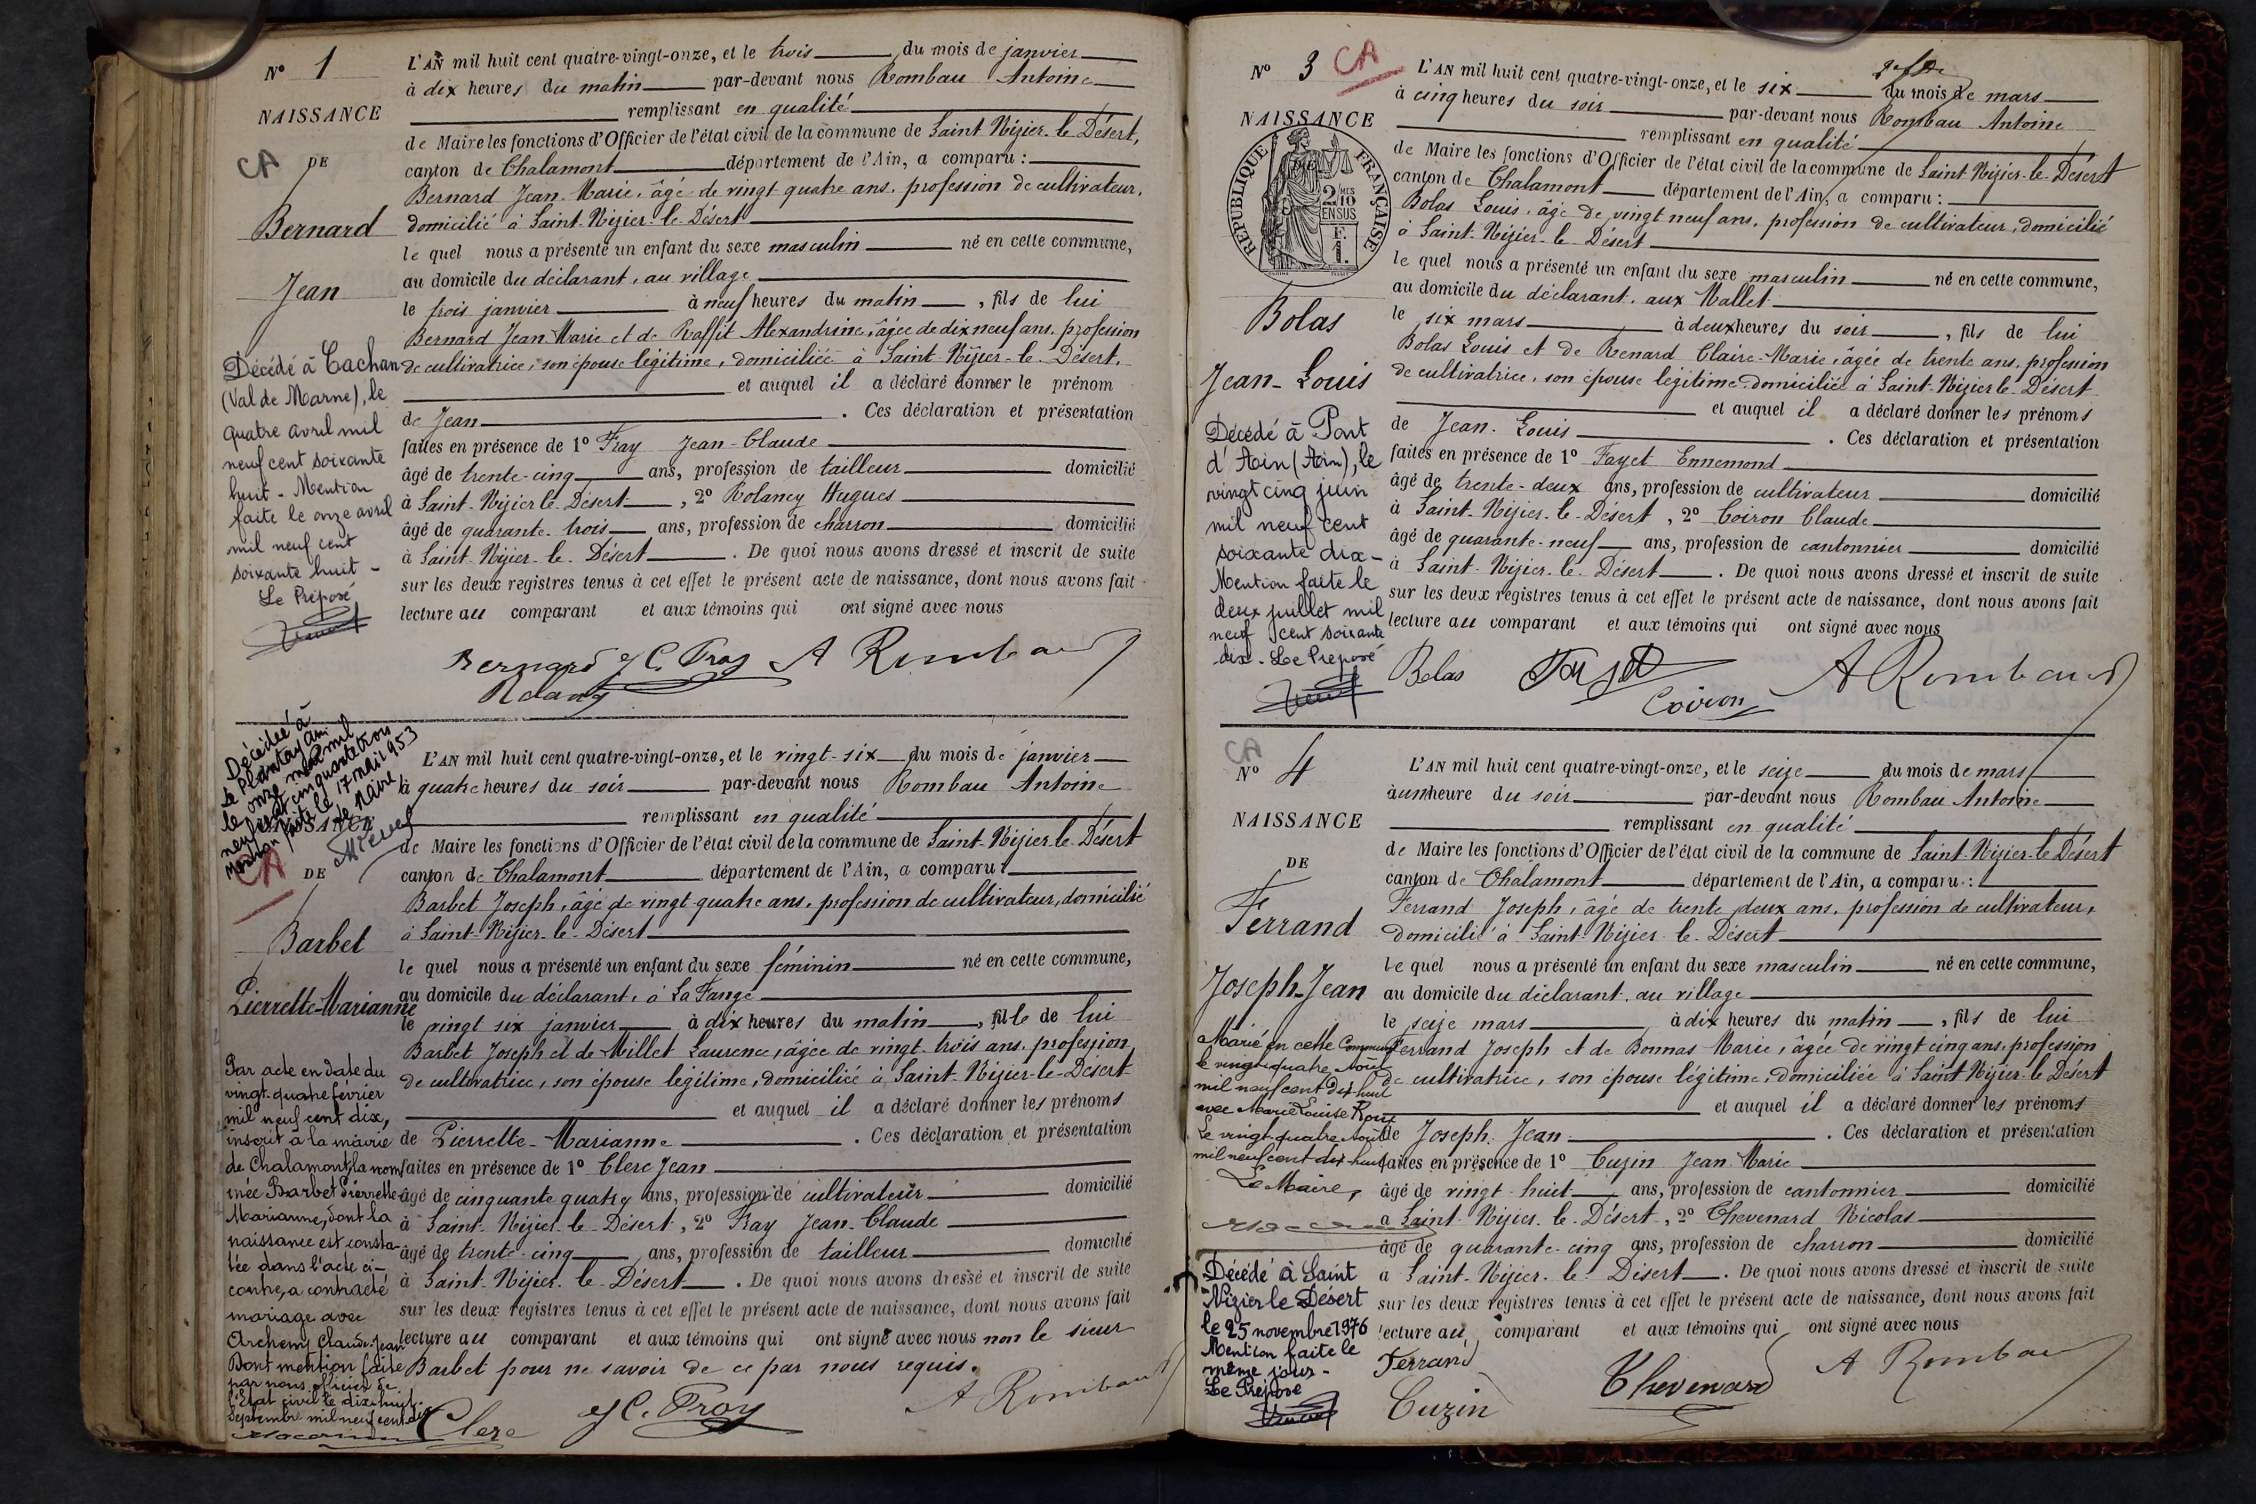 N° 1
NAISSANCE
CA
DE
Bernard
Jean
Décédé à Cachan
(Val de Marne), le
quatre avril mil
neuf cent soixante
huit - Mention
faite le onze avril
mil neuf cent
soixante huit -
Le Préposé
L'AN mil huit cent quatre-vingt-onze, et le trois du mois de janvier
à dix heures du matin par-devant nous Rombau Antoine
remplissant en qualité
de Maire les fonctions d'Officier de l'état civil de la commune de Saint Nizier-le-Désert,
canton de Chalamont département de l'Ain, a comparu :
Bernard Jean-Marie, âgé de vingt quatre ans, profession de cultivateur,
domicilié à Saint-Nizier-le-Désert
le quel nous a présenté un enfant du sexe masculin né en cette commune,
au domicile du déclarant, au village
le trois janvier à neuf heures du matin , fils de lui
Bernard Jean Marie et de Raffit Alexandrine, âgée de dix neuf ans, profession
de cultivatrice, son épouse légitime, domiciliée à Saint-Nizier-le-Désert,
et auquel il a déclaré donner le prénom
de Jean . Ces déclaration et présentation
faites en présence de 1° Fray Jean-Claude
âgé de trente-cinq ans, profession de tailleur domicilié
à Saint-Nizier-le-Désert , 2° Rolancy Hugues
âgé de quarante-trois ans, profession de charron domicilié
à Saint-Nizier-le-Désert . De quoi nous avons dressé et inscrit de suite
sur les deux registres tenus à cet effet le présent acte de naissance, dont nous avons fait
lecture au comparant et aux témoins qui ont signé avec nous
Bernard J C. Fray A Rombau
Rolancy
Décédée à
Le Plantay Ain
le onze mai mil
neuf cent cinquante trois
Mention faite le 17 mai 1953
Le Maire,
NAISSANCE
CA
DE
Barbet
Pierrette-Marianne
Par acte en date du
vingt-quatre février
mil neuf cent dix,
inscrit à la mairie
de Chalamont, la nom-
mée Barbet Pierrette-
Marianne, dont la
naissance est consta-
tée dans l'acte ci-
contre, a contracté
mariage avec
Archeny Claude-Jean
Dont mention faite
par nous officier de
l'État civil le dix-huit
Septembre mil neuf cent dix
L'AN mil huit cent quatre-vingt-onze, et le vingt-six du mois de janvier
à quatre heures du soir par-devant nous Rombau Antoine
remplissant en qualité
de Maire les fonctions d'Officier de l'état civil de la commune de Saint-Nizier-le-Désert
canton de Chalamont département de l'Ain, a comparu :
Barbet Joseph, âgé de vingt-quatre ans, profession de cultivateur, domicilié
à Saint-Nizier-le-Désert
le quel nous a présenté un enfant du sexe féminin né en cette commune,
au domicile du déclarant, à La Fange
le vingt six janvier à dix heures du matin , fille de lui
Barbet Joseph et de Millet Laurence, âgée de vingt-trois ans, profession
de cultivatrice, son épouse légitime, domiciliée à Saint-Nizier-le-Désert
et auquel il a déclaré donner les prénoms
de Pierrette-Marianne . Ces déclaration et présentation
faites en présence de 1° Clerc Jean
âgé de cinquante quatre ans, profession de cultivateur domicilié
à Saint-Nizier-le-Désert, 2° Fray Jean-Claude
âgé de trente-cinq ans, profession de tailleur domicilié
à Saint-Nizier-le-Désert . De quoi nous avons dressé et inscrit de suite
sur les deux registres tenus à cet effet le présent acte de naissance, dont nous avons fait
lecture au comparant et aux témoins qui ont signé avec nous non le sieur
Barbet pour ne savoir de ce par nous requis.
Clerc J C. Fray A Rombau
N° 3 CA
NAISSANCE
RÉPUBLIQUE FRANÇAISE
2 MES
10
EN SUS
F.
1.
Bolas
Jean-Louis
Décédé à Pont
d'Ain (Ain), le
vingt cinq juin
mil neuf cent
soixante dix -
Mention faite le
deux juillet mil
neuf cent soixante
dix - Le Préposé
L'AN mil huit cent quatre-vingt-onze, et le six du mois de mars
à cinq heures du soir par-devant nous Rombau Antoine
remplissant en qualité
de Maire les fonctions d'Officier de l'état civil de la commune de Saint-Nizier-le-Désert
canton de Chalamont département de l'Ain, a comparu :
Bolas Louis, âgé de vingt neuf ans, profession de cultivateur, domicilié
à Saint-Nizier-le-Désert
le quel nous a présenté un enfant du sexe masculin né en cette commune,
au domicile du déclarant, aux Mallet
le six mars à deux heures du soir , fils de lui
Bolas Louis et de Renard Claire-Marie, âgée de trente ans, profession
de cultivatrice, son épouse légitime domiciliée à Saint-Nizier le Désert
et auquel il a déclaré donner les prénoms
de Jean-Louis . Ces déclaration et présentation
faites en présence de 1° Fayet Ennemond
âgé de trente-deux ans, profession de cultivateur domicilié
à Saint-Nizier-le-Désert, 2° Coiron Claude
âgé de quarante-neuf ans, profession de cantonnier domicilié
à Saint-Nizier-le-Désert . De quoi nous avons dressé et inscrit de suite
sur les deux registres tenus à cet effet le présent acte de naissance, dont nous avons fait
lecture au comparant et aux témoins qui ont signé avec nous
Bolas Fayet A Rombau
Coiron
CA
N° 4
NAISSANCE
DE
Ferrand
Joseph-Jean
Marié en cette Commune
le vingt-quatre Août
mil neuf cent dix-huit
avec Marie Louise Roux
Le vingt-quatre Août
mil neuf cent dix-huit
Le Maire,
Décédé à Saint
Nizier le Désert
le 25 novembre 1976
Mention faite le
même jour -
Le Préposé
L'AN mil huit cent quatre-vingt-onze, et le seize du mois de mars
à une heure du soir par-devant nous Rombau Antoine
remplissant en qualité
de Maire les fonctions d'Officier de l'état civil de la commune de Saint-Nizier-le-Désert
canton de Chalamont département de l'Ain, a comparu :
Ferrand Joseph, âgé de trente deux ans, profession de cultivateur,
domicilié à Saint-Nizier-le-Désert
le quel nous a présenté un enfant du sexe masculin né en cette commune,
au domicile du déclarant, au village
le seize mars à dix heures du matin , fils de lui
Ferrand Joseph et de Bonnas Marie, âgée de vingt cinq ans, profession
de cultivatrice, son épouse légitime, domiciliée à Saint Nizier-le Désert
et auquel il a déclaré donner les prénoms
de Joseph Jean . Ces déclaration et présentation
faites en présence de 1° Cuzin Jean Marie
âgé de vingt-huit ans, profession de cantonnier domicilié
à Saint-Nizier-le-Désert, 2° Thevenard Nicolas
âgé de quarante-cinq ans, profession de charron domicilié
à Saint-Nizier-le-Désert . De quoi nous avons dressé et inscrit de suite
sur les deux registres tenus à cet effet le présent acte de naissance, dont nous avons fait
lecture au comparant et aux témoins qui ont signé avec nous
Ferrand Thevenard A Rombau
Cuzin